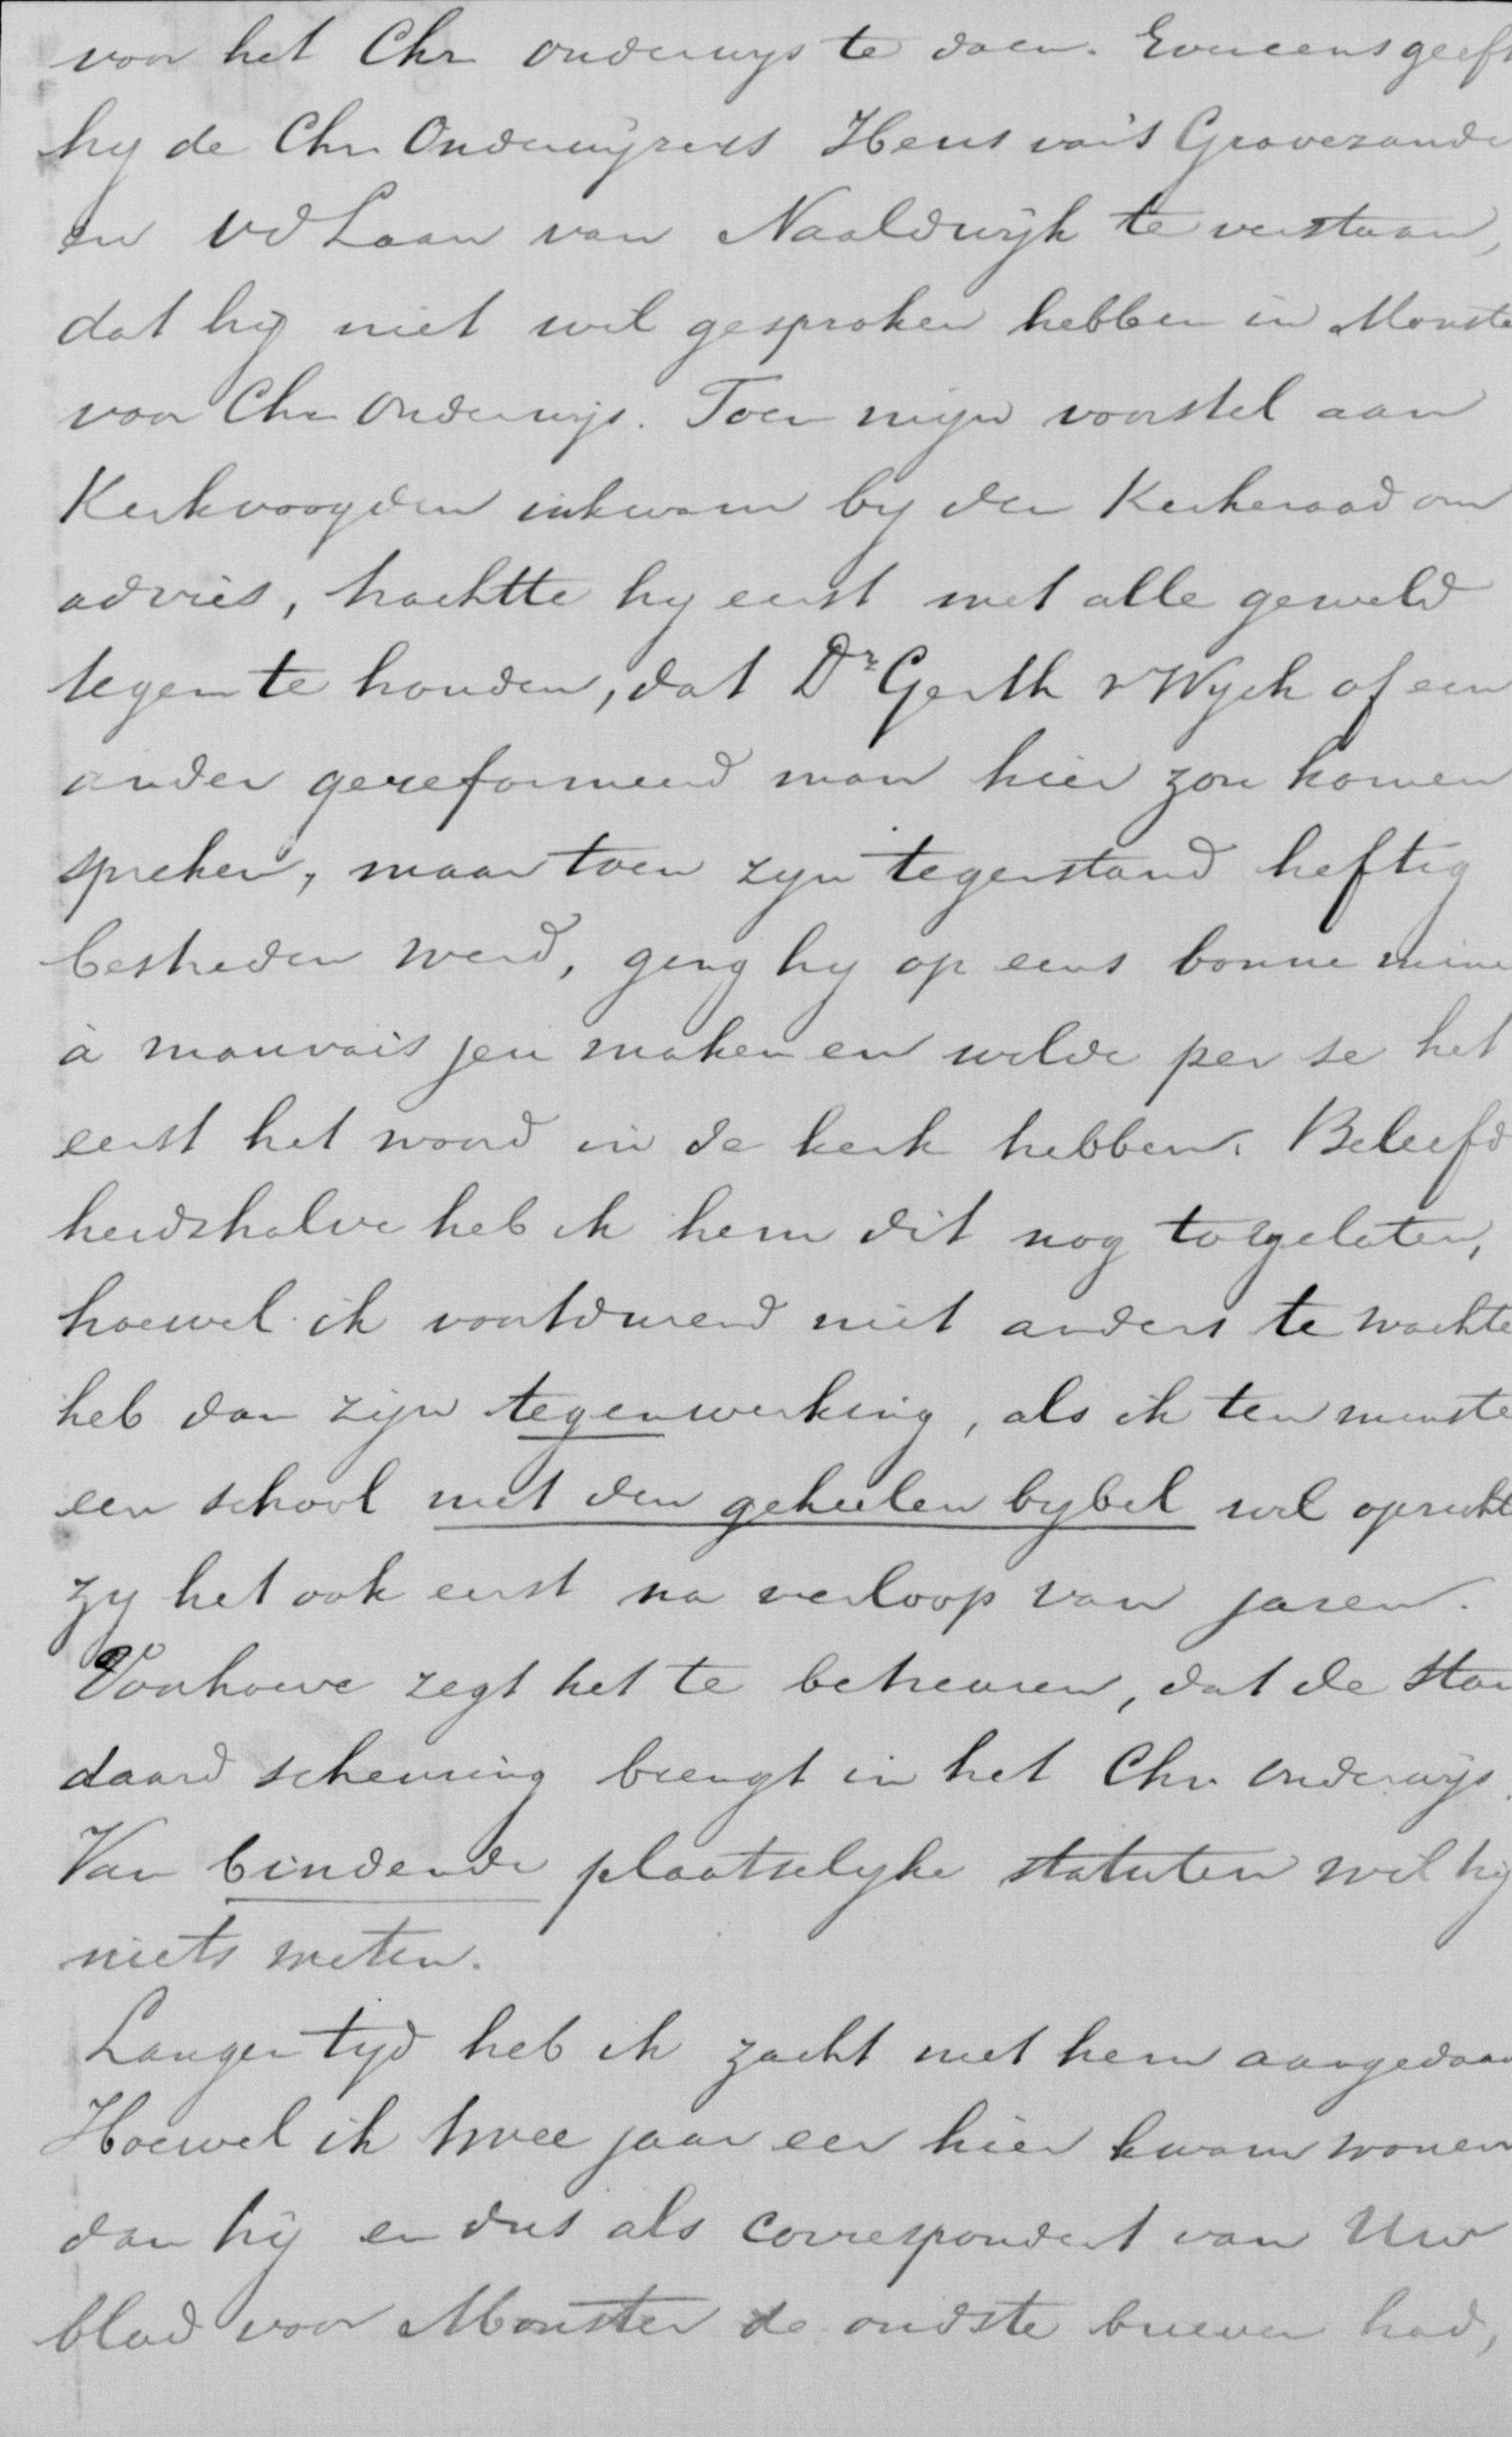 voor het Chr onderwys te doen. Eveneens geeft
hy de Chr Onderwyzers Heus van 's Gravezande
en vd Laan van Naaldwijk te verstaan,
dat hij niet wil gesproken hebben in Monste
voor Chr Onderwijs. Toen mijn voorstel aan
Kerkvoogden inkwam by den Kerkeraad om
advies, trachtte hy eerst met alle geweld
tegen te houden, dat Dr Gerth v Wyck of een
ander gereformeerd man hier zou komen
spreken, maar toen zyn tegenstand heftig
bestreden werd, ging hy op eens bonne mine
à mauvais jeu maken en wilde per se het
eerst het woord in de kerk hebben. Beleefd
heidshalve heb ik hem dit nog toegelaten,
hoewel ik voortdurend niet anders te wachte
heb dan zijn tegenwerking, als ik ten minste
een school met den geheelen bybel wil opricht
zy het ook eerst na verloop van jaren.
Voorhoeve zegt het te betreuren, dat de Stan
daard scheuring brengt in het Chr Onderwijs.
Van bindende plaatselyke statuten wil hij
niets weten.
Langen tijd heb ik zacht met hem aangedaan
Hoewel ik twee jaar eer hier kwam wonen
dan hij en dus als correspondent van Uw
blad voor Monster de oudste brieven had,